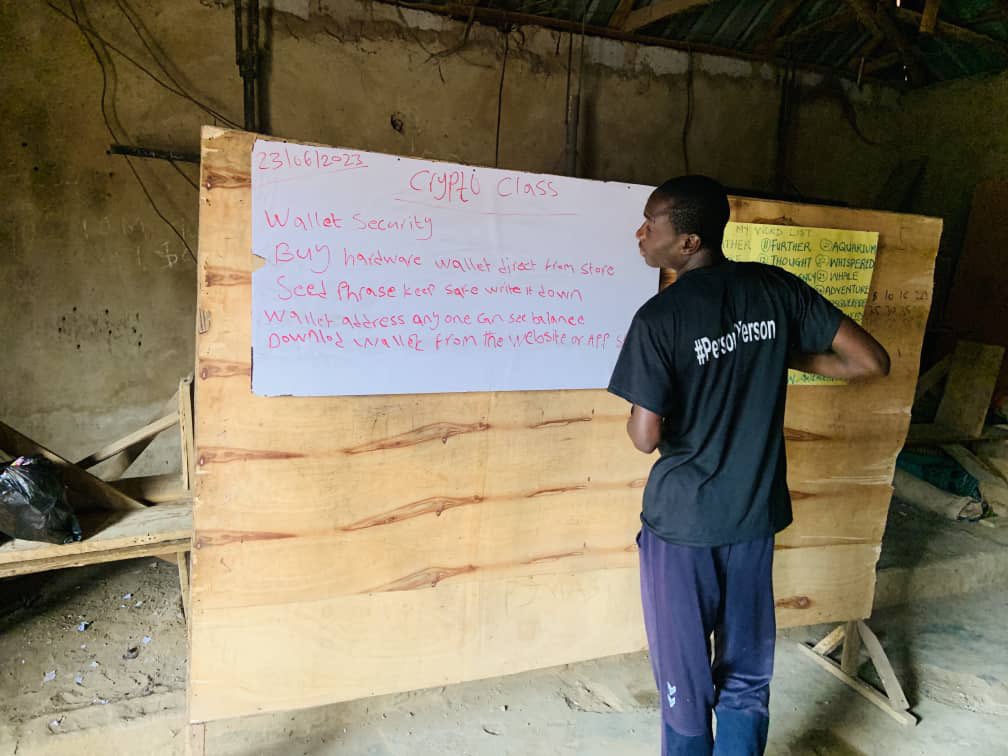 23/06/2023
Crypto Class
Wallet Security
Buy hardware wallet direct from store
Seed Phrase keep safe write it down
Wallet address any one can see balance
Downlod wallet from the website or App
MY WORD LIST
⑪ FURTHER
AQUARIUM
THOUGHT
WHISPERED
WHALE
ADVENTURE
#Person
erson